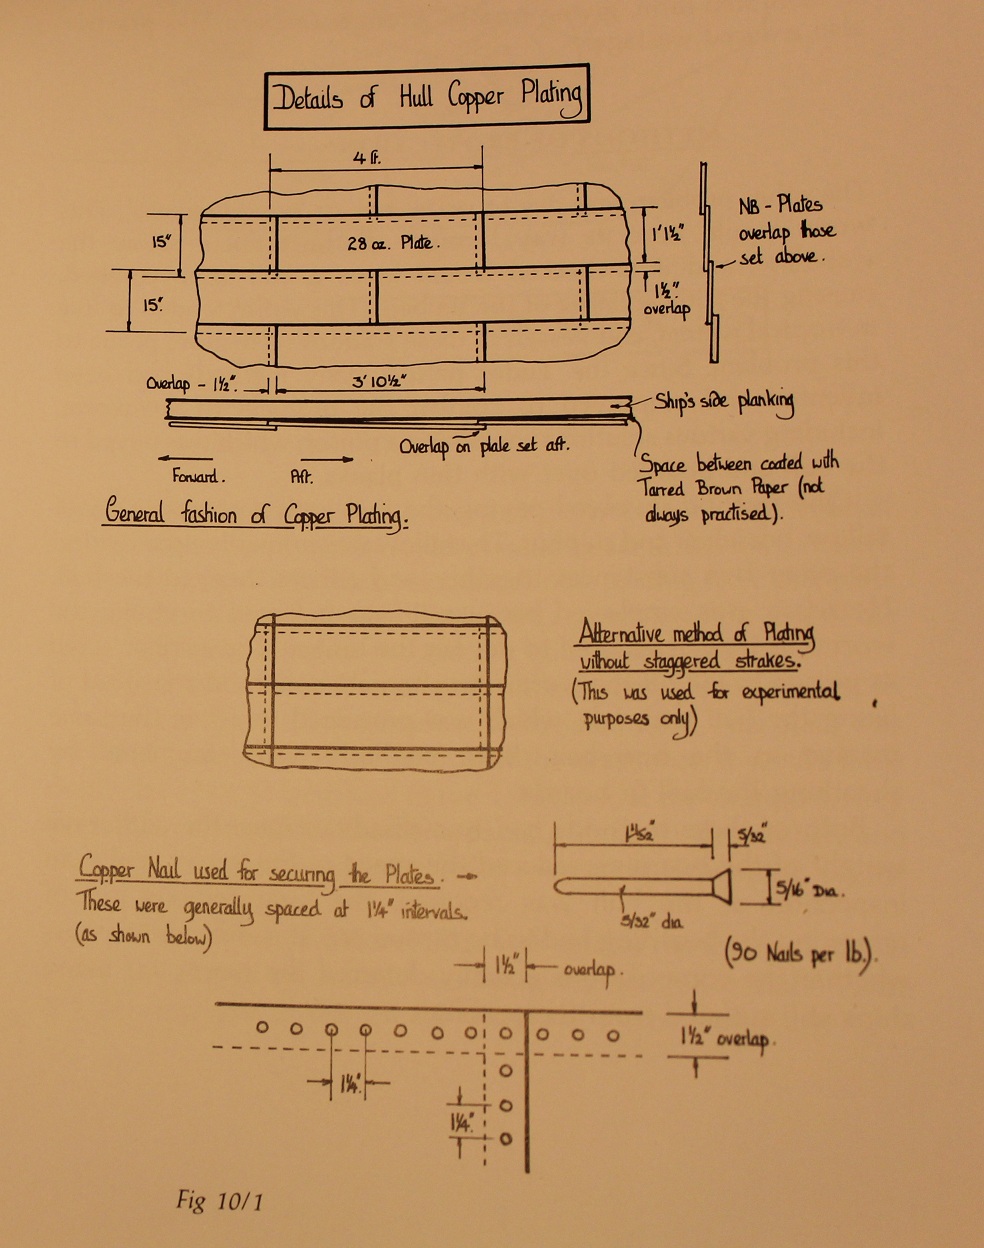 Details of Hull Copper Plating
4 ft.
15"
28 oz. Plate.
1' 1½"
NB - Plates
overlap those
set above.
15"
1½"
overlap
Overlap - 1½".
3' 10½"
Ship's side planking
Overlap on plate set aft.
Forward.
Aft.
Space between coated with
Tarred Brown Paper (not
always practised).
General fashion of Copper Plating.
Alternative method of Plating
without staggered strakes.
(This was used for experimental
purposes only)
5/32"
Copper Nail used for securing the Plates.
These were generally spaced at 1¼" intervals.
(as shown below)
5/16" Dia.
5/32" dia
(90 Nails per lb.).
1½"
overlap.
1½" overlap.
1¼"
1¼"
Fig 10/1